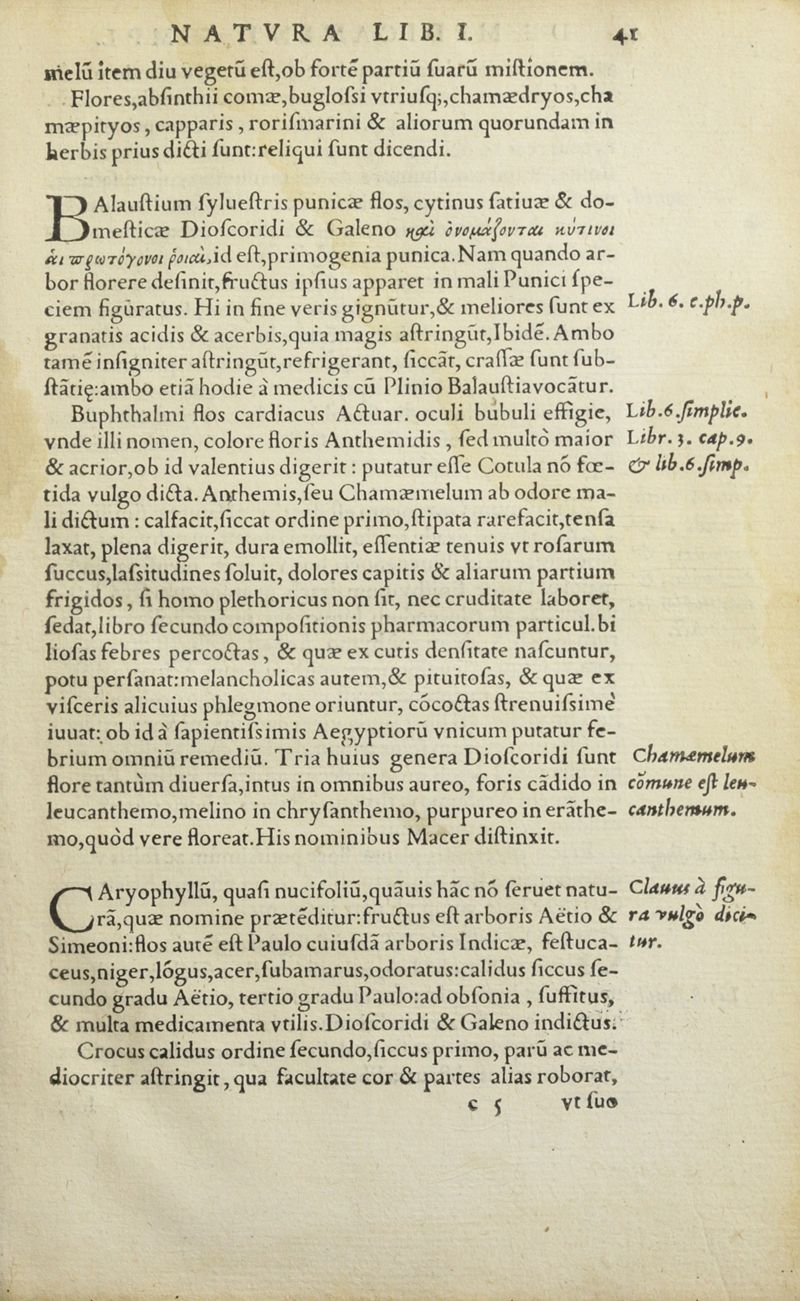 NATVRA LIB. I. 41
melũ item diu vegetũ eſt,ob fortẽ partiũ ſuarũ miſtionem.
Flores,abſinthii comæ,bugloſsi vtriuſq;,chamædryos,cha
mæpityos, capparis, roriſmarini & aliorum quorundam in
herbis prius dicti ſunt:reliqui ſunt dicendi.
BAlauſtium ſylueſtris punicæ flos, cytinus ſatiuæ & do-
meſticæ Dioſcoridi & Galeno καὶ ὀνομάζονται κύτινοι
αἱ πρωτόγονοι ῥοιαὶ,id eſt,primogenia punica.Nam quando ar-
bor florere deſinit,fructus ipſius apparet in mali Punici ſpe-
ciem figùratus. Hi in fine veris gignũtur,& meliores ſunt ex
Lib. 6. e.ph.p.
granatis acidis & acerbis,quia magis aſtringũt,Ibidẽ.Ambo
tamẽ inſigniter aſtringũt,refrigerant, ſiccãt, craſſæ ſunt ſub-
ſtãtię:ambo etiã hodie à medicis cũ Plinio Balauſtia vocãtur.
Buphthalmi flos cardiacus Actuar. oculi bubuli effigie,
Lib.6.ſimplic.
vnde illi nomen, colore floris Anthemidis, ſed multò maior
Libr. 3. cap.9.
& acrior,ob id valentius digerit: putatur eſſe Cotula nõ fœ-
& lib.6.ſimp.
tida vulgo dicta. Anthemis,ſeu Chamæmelum ab odore ma-
li dictum: calfacit,ſiccat ordine primo,ſtipata rarefacit,tenſa
laxat, plena digerit, dura emollit, eſſentiæ tenuis vt roſarum
ſuccus,laſsitudines ſoluit, dolores capitis & aliarum partium
frigidos, ſi homo plethoricus non ſit, nec cruditate laboret,
ſedat,libro ſecundo compoſitionis pharmacorum particul.bi
lioſas febres percoctas, & quæ ex cutis denſitate naſcuntur,
potu perſanat:melancholicas autem,& pituitoſas, & quæ ex
viſceris alicuius phlegmone oriuntur, cõcoctas ſtrenuiſsimè
iuuat: ob id à ſapientiſsimis Aegyptiorũ vnicum putatur fe-
brium omniũ remediũ. Tria huius genera Dioſcoridi ſunt
Chamæmelum
flore tantùm diuerſa,intus in omnibus aureo, foris cãdido in
cõmune eſt leu-
leucanthemo,melino in chryſanthemo, purpureo in erãthe-
canthemum.
mo,quòd vere floreat.His nominibus Macer diſtinxit.
CAryophyllũ, quaſi nucifoliũ,quãuis hãc nõ ſeruet natu-
Clauus à figu-
rã,quæ nomine prætẽditur:fructus eſt arboris Aëtio &
ra vulgò dici-
Simeoni:flos autẽ eſt Paulo cuiuſdã arboris Indicæ, feſtuca-
tur.
ceus,niger,lõgus,acer,ſubamarus,odoratus:calidus ſiccus ſe-
cundo gradu Aëtio, tertio gradu Paulo:ad obſonia, ſuffitus,
& multa medicamenta vtilis.Dioſcoridi & Galeno indictus.
Crocus calidus ordine ſecundo,ſiccus primo, parũ ac me-
diocriter aſtringit, qua facultate cor & partes alias roborat,
c 5 vt ſuo